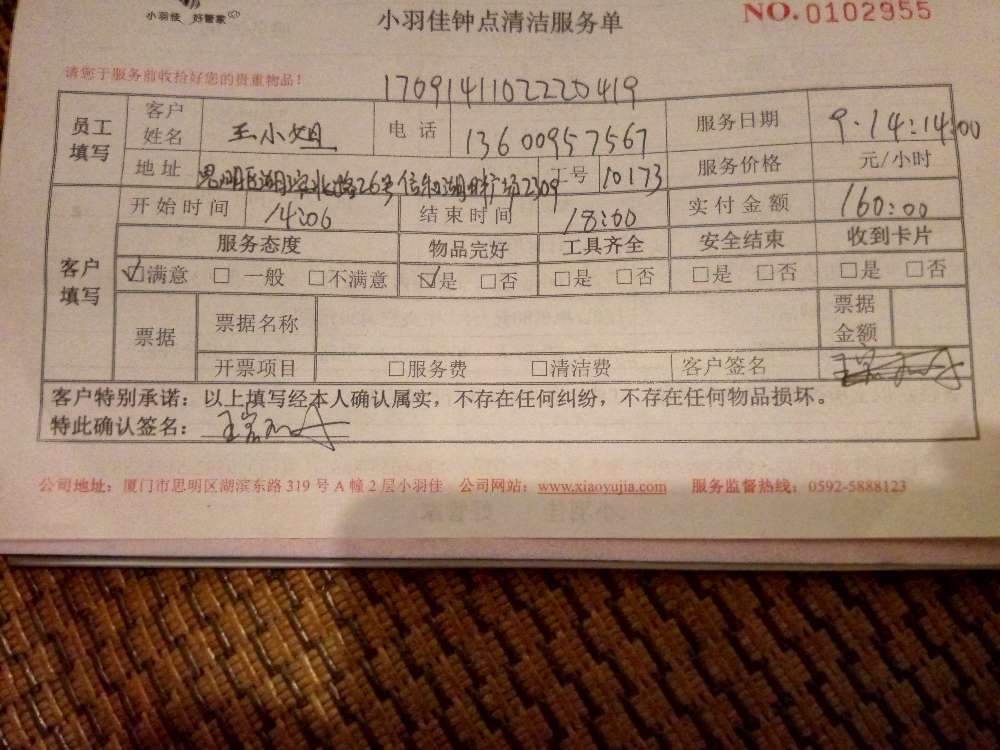 小羽佳 好管家
小羽佳钟点清洁服务单
NO.0102955
请您于服务前收拾好您的贵重物品！
1709141102220419
员工填写 客户姓名 王小姐 电话 13600957567 服务日期 9.14:14:00
地址 思明区湖滨北路26号 2309 工号 10173 服务价格 元/小时
客户填写 开始时间 14:06 结束时间 18:00 实付金额 160:00
服务态度 物品完好 工具齐全 安全结束 收到卡片
☑满意 □一般 □不满意 ☑是 □否 □是 □否 □是 □否 □是 □否
票据 票据名称 票据金额
开票项目 □服务费 □清洁费 客户签名
客户特别承诺：以上填写经本人确认属实，不存在任何纠纷，不存在任何物品损坏。
特此确认签名：
公司地址：厦门市思明区湖滨东路319号A幢2层小羽佳 公司网站：www.xiaoyujia.com 服务监督热线：0592-5888123